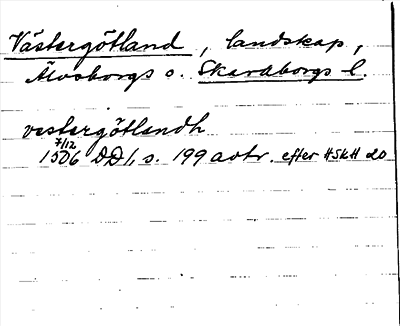 Västergötland, landskap,
Älvsborgs o. Skaraborgs l.
vestergötlandh
7/12
1506 DD 1, s. 199 avtr. efter HSkH 20